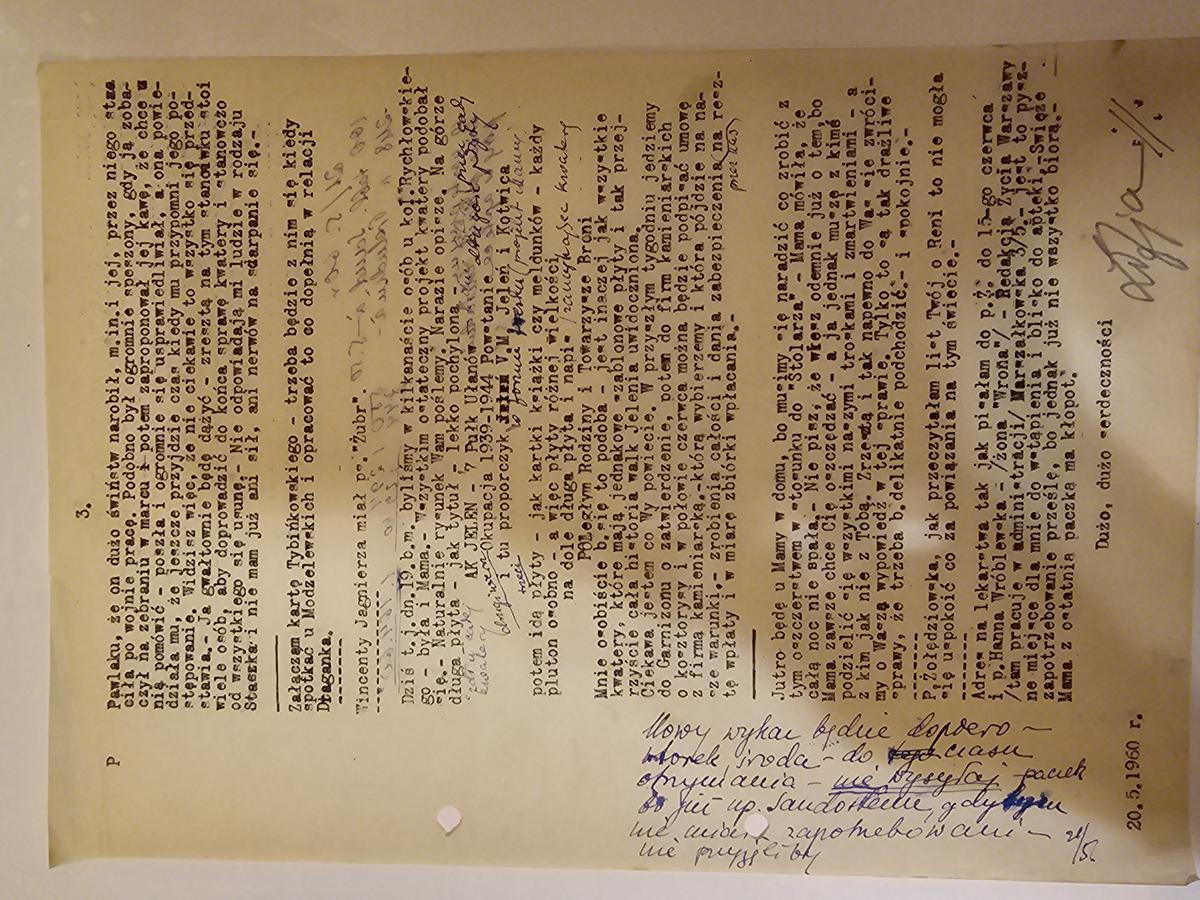 3.
P Pawlaku, że on dużo świństw narobił, m.in.i jej, przez niego stra
ciła po wojnie pracę. Podobno był ogromnie speszony, gdy ją zoba-
czył na zebraniu w marcu i potem zaproponował jej kawę, że chce z
nią pomówić - poszła i ogromnie się usprawiedliwiał, a ona powie-
działa mu, że jeszcze przyjdzie czas kiedy mu przypomni jego po-
stępowanie. Widzisz więc, że nie ciekawie to wszystko się przed-
stawia.- Ja gwałtownie będę dążyć - zresztą na tym stanowisku stoi
wiele osób, aby doprowadzić do końca sprawę kwatery i stanowczo
od wszystkiego się usunę.- Nie odpowiadają mi ludzie w rodzaju
Staszka i nie mam już ani sił, ani nerwów na szarpanie się.-
Załączam kartę Tybińkowskiego - trzeba będzie z nim się kiedy
spotkać u Modzelewskich i opracować to co dopełnią w relacji
Dyaganka.
Wincenty Jagniera miał ps."Żubr".
Dziś t.j.dn.19.b.m. byliśmy w kilkanaście osób u kol.Rychłowskie-
go - była i Mama.- Wszystkim ostateczny projekt kwatery podobał
się.- Naturalnie rysunek Wam poślemy. Narazie opiszę. Na górze
długa płyta - jak tytuł - lekko pochylona -
całej kwatery
AK JELEŃ - 7 Pułk Ułanów
Okupacja 1939-1944 Powstanie
i tu proporczyk V.M. Jeleń i Kotwica
potem idą płyty - jak kartki książki czy meldunków - każdy
pluton osobno - a więc płyty różnej wielkości,
na dole długa płyta i napis /zamykające kwaterę
POLEGŁYM Rodziny i Towarzysze Broni
Mnie osobiście b.się to podoba - jest inaczej jak wszystkie
kwatery, które mają jednakowe szablonowe płyty i tak przej-
rzyście cała historia walk Jelenia uwidoczniona.
Ciekawa jestem co Wy powiecie. W przyszłym tygodniu jedziemy
do Garnizonu o zatwierdzenie, potem do firm kamieniarskich
o kosztorysy i w połowie czerwca można będzie podpisać umowę
z firmą kamieniarską.-którą wybierzemy i która pójdzie na na-
sze warunki,- zrobienia całości i dania zabezpieczenia na resz-
tę wpłaty w miarę zbiórki wpłacania.-
Jutro będę u Mamy w domu, bo musimy się naradzić co zrobić z
tym oszczerstwem w stosunku do "Stolarza"- Mama mówiła, że
całą noc nie spała.- Nie pisz, że wiesz odemnie już o tem, bo
Mama zawsze chce Cię oszczędzać - a ja jednak muszę z kimś
podzielić się wszystkimi naszymi troskami i zmartwieniami - a
z kim jak nie z Tobą. Zresztą i tak napewno do Was się zwróci-
my o Waszą wypowiedź w tej sprawie. Tylko to są tak drażliwe
sprawy, że trzeba b.delikatnie podchodzić.- i spokojnie.-
P.Żołędziowska, jak przeczytałam list Twój o Reni to nie mogła
się uspokoić co za powiązania na tym świecie.-
Adres na lekarstwa tak jak pisałam do p.Z. do 15-go czerwca
i p.Hanna Wróblewska - /żona "Wrona"/ - Redakcja Życia Warszawy
/tam pracuje w administracji/ Marszałkowska 3/5.- jest to pysz-
ne miejsce dla mnie do wstąpienia i blisko do apteki. Świeże
zapotrzebowanie prześlę, bo jednak już nie wszystko biorą.-
Mama z ostatnią paczką ma kłopot.
Dużo, dużo serdeczności
20.5.1960 r.
Nowy wykaz będzie dopiero -
wtorek, środa - do czasu
otrzymania - nie wysyłaj paczek
bo już np. Sandosteny, gdybym
nie miała zapotrzebowania -
nie przyjęliby
21/5.